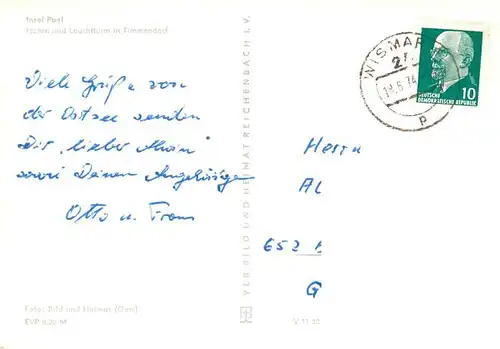 Insel Poel
Yachten und Leuchtturm in Timmendorf
Viele Grüße von
der Ostsee senden
Dir, lieber
sowie Deinen Angehörigen
Otto u. Frau
Foto: Bild und Heimat (Geni)
EVP 0,20 M
VEB BILD UND HEIMAT REICHENBACH I. V.
V 11 30
WISMAR
2
19.6.74
p
10
DEUTSCHE
DEMOKRATISCHE REPUBLIK
Herrn
AL
652
G